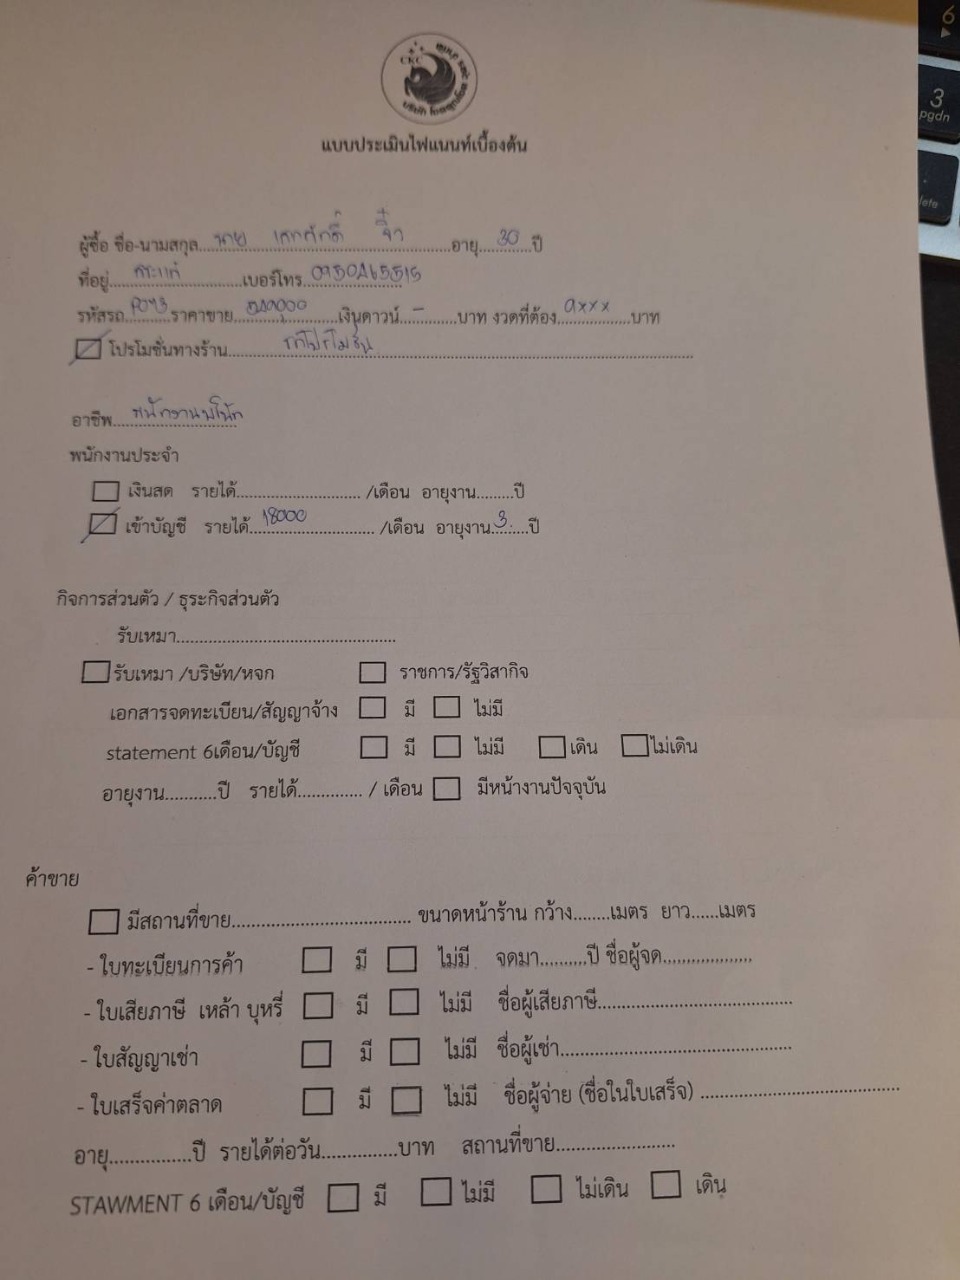 CKC
แบบประเมินไฟแนนท์เบื้องต้น
ผู้ซื้อ ชื่อ-นามสกุล....นาย เอกศักดิ์ จิ๋ว....อายุ....30..ปี
ที่อยู่..........เบอร์โทร..0950465515
รหัสรถ..P043..ราคาขาย..........เงินดาวน์..-..บาท งวดที่ต้อง..9xxx..บาท
โปรโมชั่นทางร้าน..........
อาชีพ...พนักงาน
พนักงานประจำ
เงินสด รายได้............................ /เดือน อายุงาน.........ปี
เข้าบัญชี รายได้..18000............. /เดือน อายุงาน..3.....ปี
กิจการส่วนตัว / ธุระกิจส่วนตัว
รับเหมา................................................
รับเหมา /บริษัท/หจก ราชการ/รัฐวิสากิจ
เอกสารจดทะเบียน/สัญญาจ้าง มี ไม่มี
statement 6เดือน/บัญชี มี ไม่มี เดิน ไม่เดิน
อายุงาน...........ปี รายได้.............. / เดือน มีหน้างานปัจจุบัน
ค้าขาย
มีสถานที่ขาย.................................. ขนาดหน้าร้าน กว้าง........เมตร ยาว......เมตร
- ใบทะเบียนการค้า มี ไม่มี จดมา..........ปี ชื่อผู้จด...................
- ใบเสียภาษี เหล้า บุหรี่ มี ไม่มี ชื่อผู้เสียภาษี..........................................
- ใบสัญญาเช่า มี ไม่มี ชื่อผู้เช่า..................................................
- ใบเสร็จค่าตลาด มี ไม่มี ชื่อผู้จ่าย (ชื่อในใบเสร็จ) ............................................
อายุ................ปี รายได้ต่อวัน...............บาท สถานที่ขาย..........................
STAWMENT 6 เดือน/บัญชี มี ไม่มี ไม่เดิน เดิน
6
3
pgdn
lete